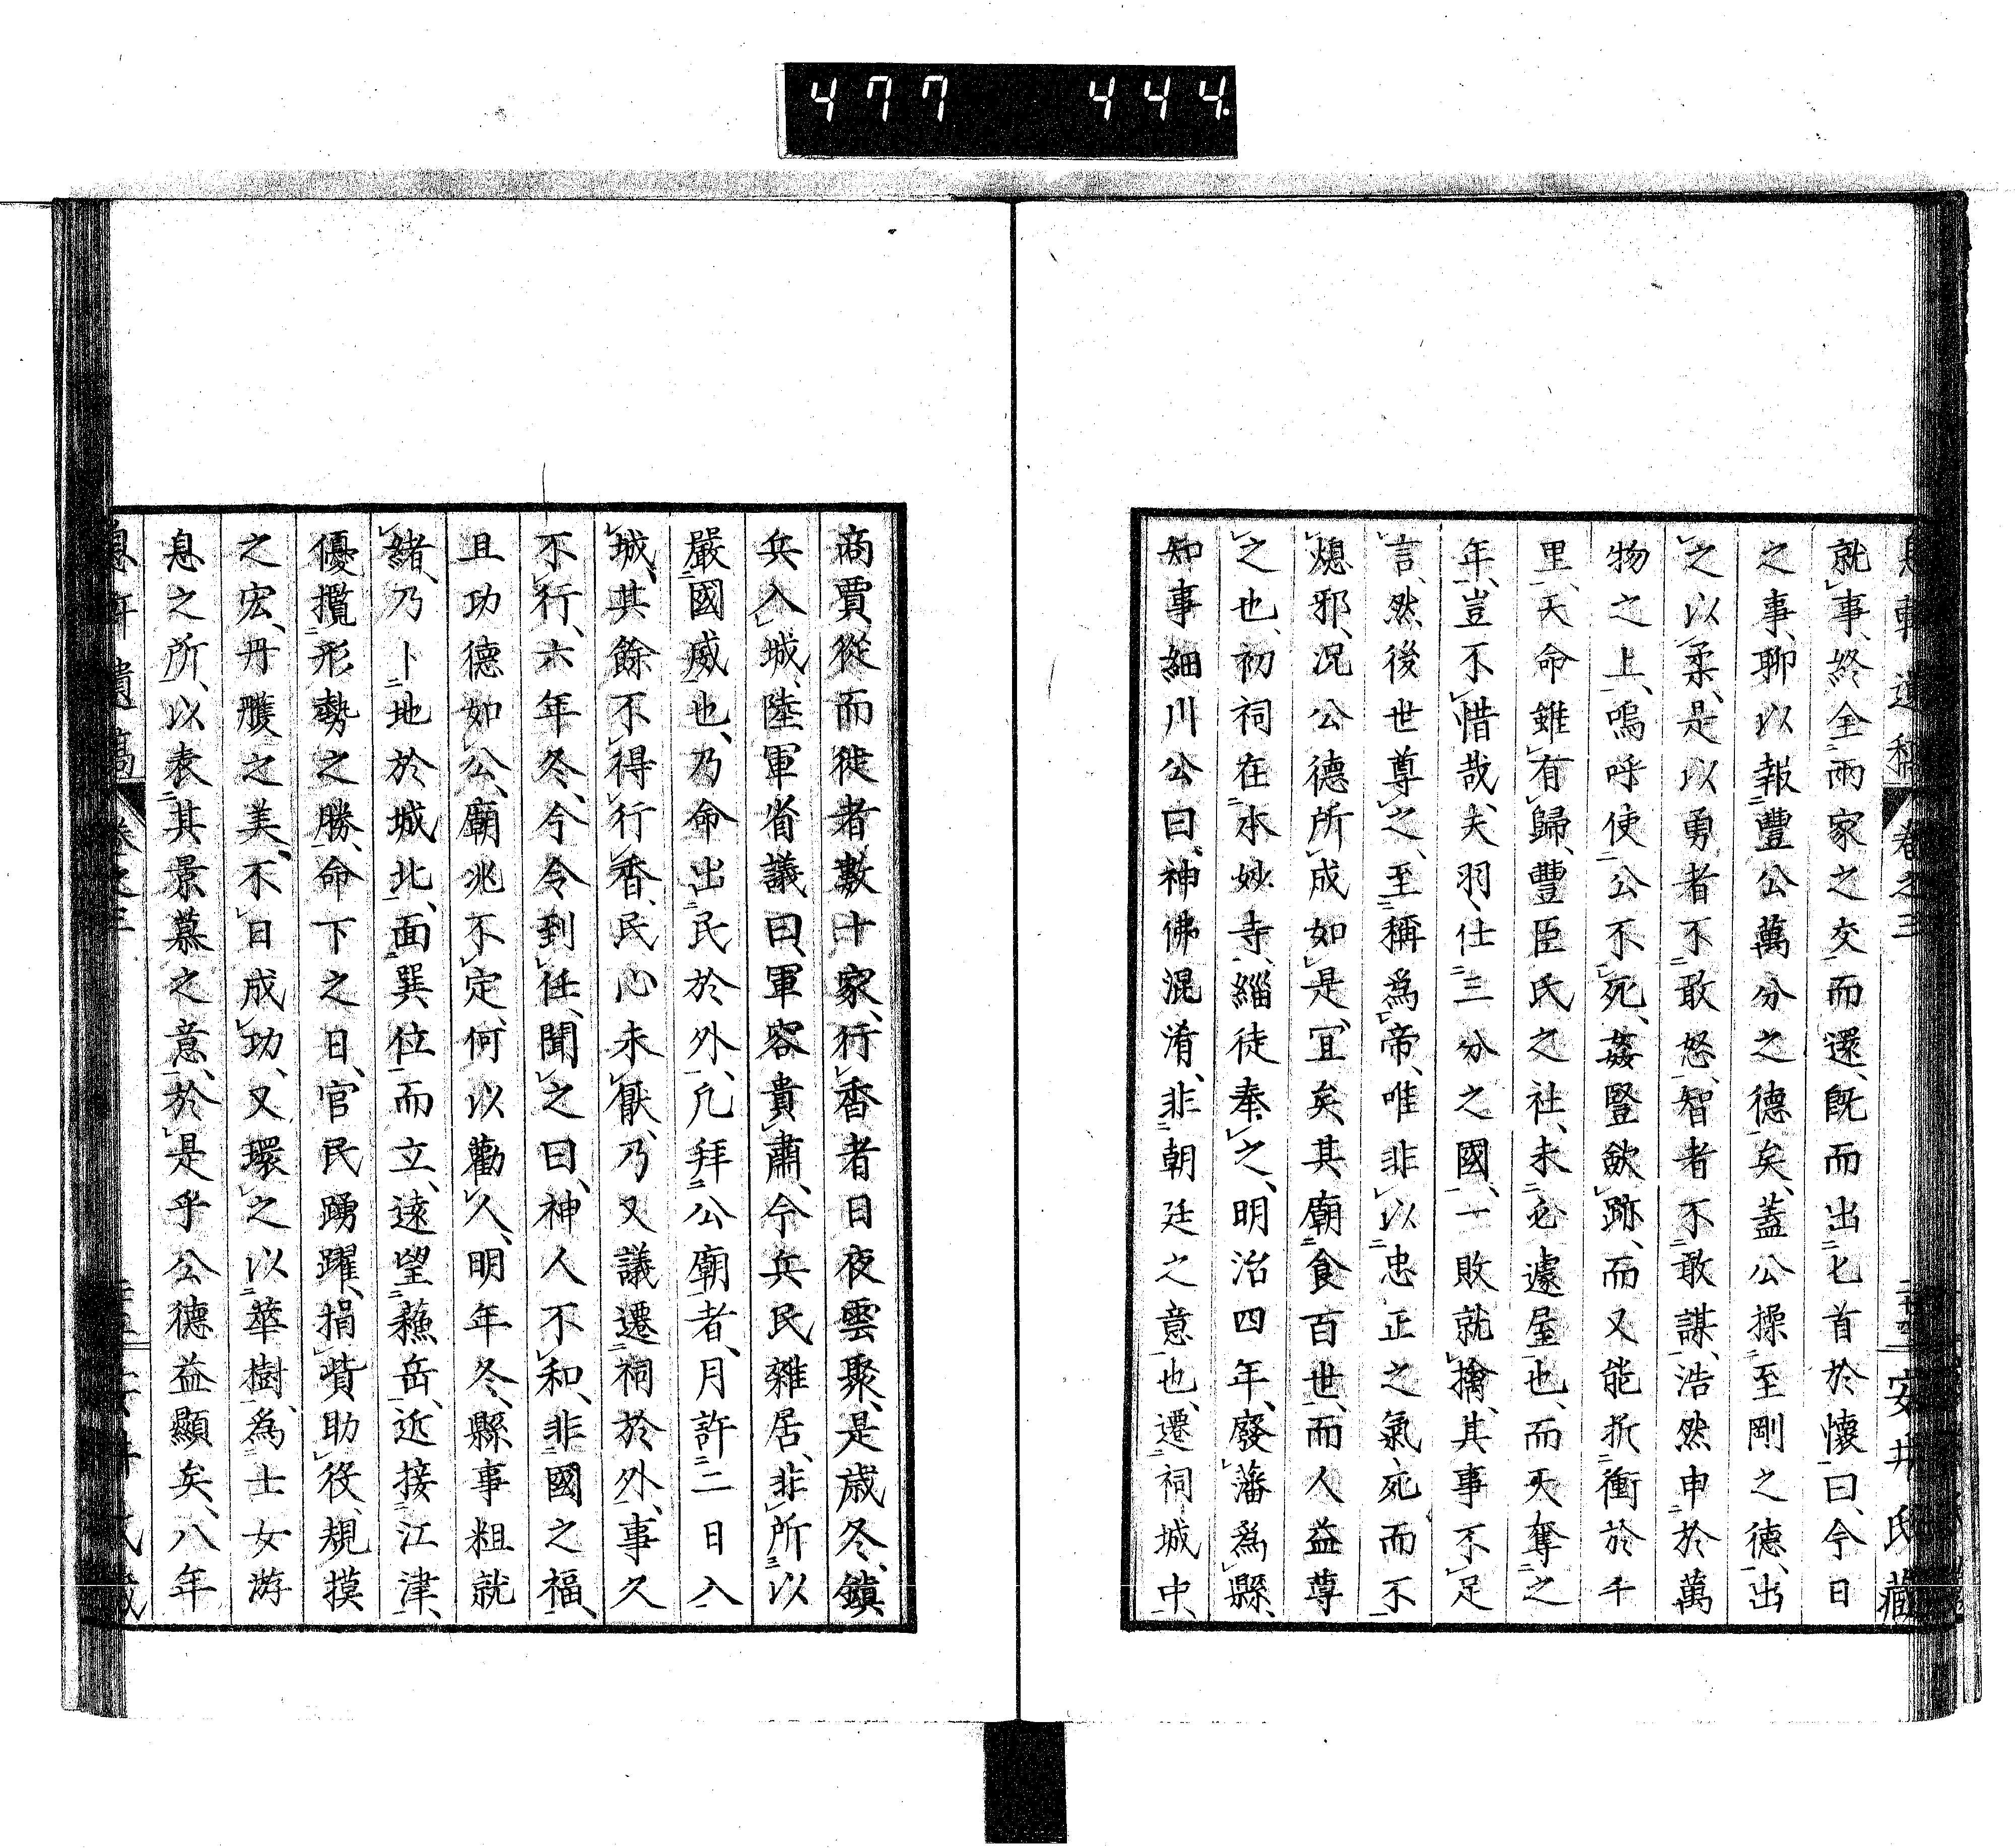 477 444
遺稿 卷之三 二十四 安井氏藏
就事、終全兩家之交而還、既而出匕首於懷曰、今日
之事、聊以報豐公萬分之德矣、蓋公操至剛之德、出
之以柔、是以勇者不敢怒、智者不敢謀、浩然申於萬
物之上、嗚呼使公不死、姦豎歛跡、而又能折衝於千
里、天命雖有歸、豐臣氏之社、未必遽屋也、而天奪之
年、豈不惜哉、夫羽、仕三分之國、一敗就擒、其事不足
言、然後世尊之、至稱爲帝、唯非以忠正之氣、死而不
熄邪、況公德所成如是、宜矣、其廟食百世、而人益尊
之也、初祠在本妙寺、緇徒奉之、明治四年、廢藩爲縣、
知事細川公曰、神佛混淆、非朝廷之意也、遷祠城中、
商賈從而徙者數十家、行香者日夜雲聚、是歲冬、鎮
兵入城、陸軍省議曰、軍容貴肅、今兵民雜居、非所以
嚴國威也、乃命出民於外、凡拜公廟者、月許二日入
城、其餘不得行香、民心未厭、乃又議遷祠於外、事久
不行、六年冬、今令到任、聞之曰、神人不和、非國之福、
且功德如公、廟兆不定、何以勸人、明年冬、縣事粗就
緒、乃卜地於城北、面巽位而立、遠望蘓岳、近接江津、
優攬形勢之勝、命下之日、官民踴躍、捐貲助役、規摸
之宏、丹雘之美、不日成功、又環之以華樹、爲士女游
息之所、以表其景慕之意、於是乎公德益顯矣、八年
息軒遺稿 卷之三